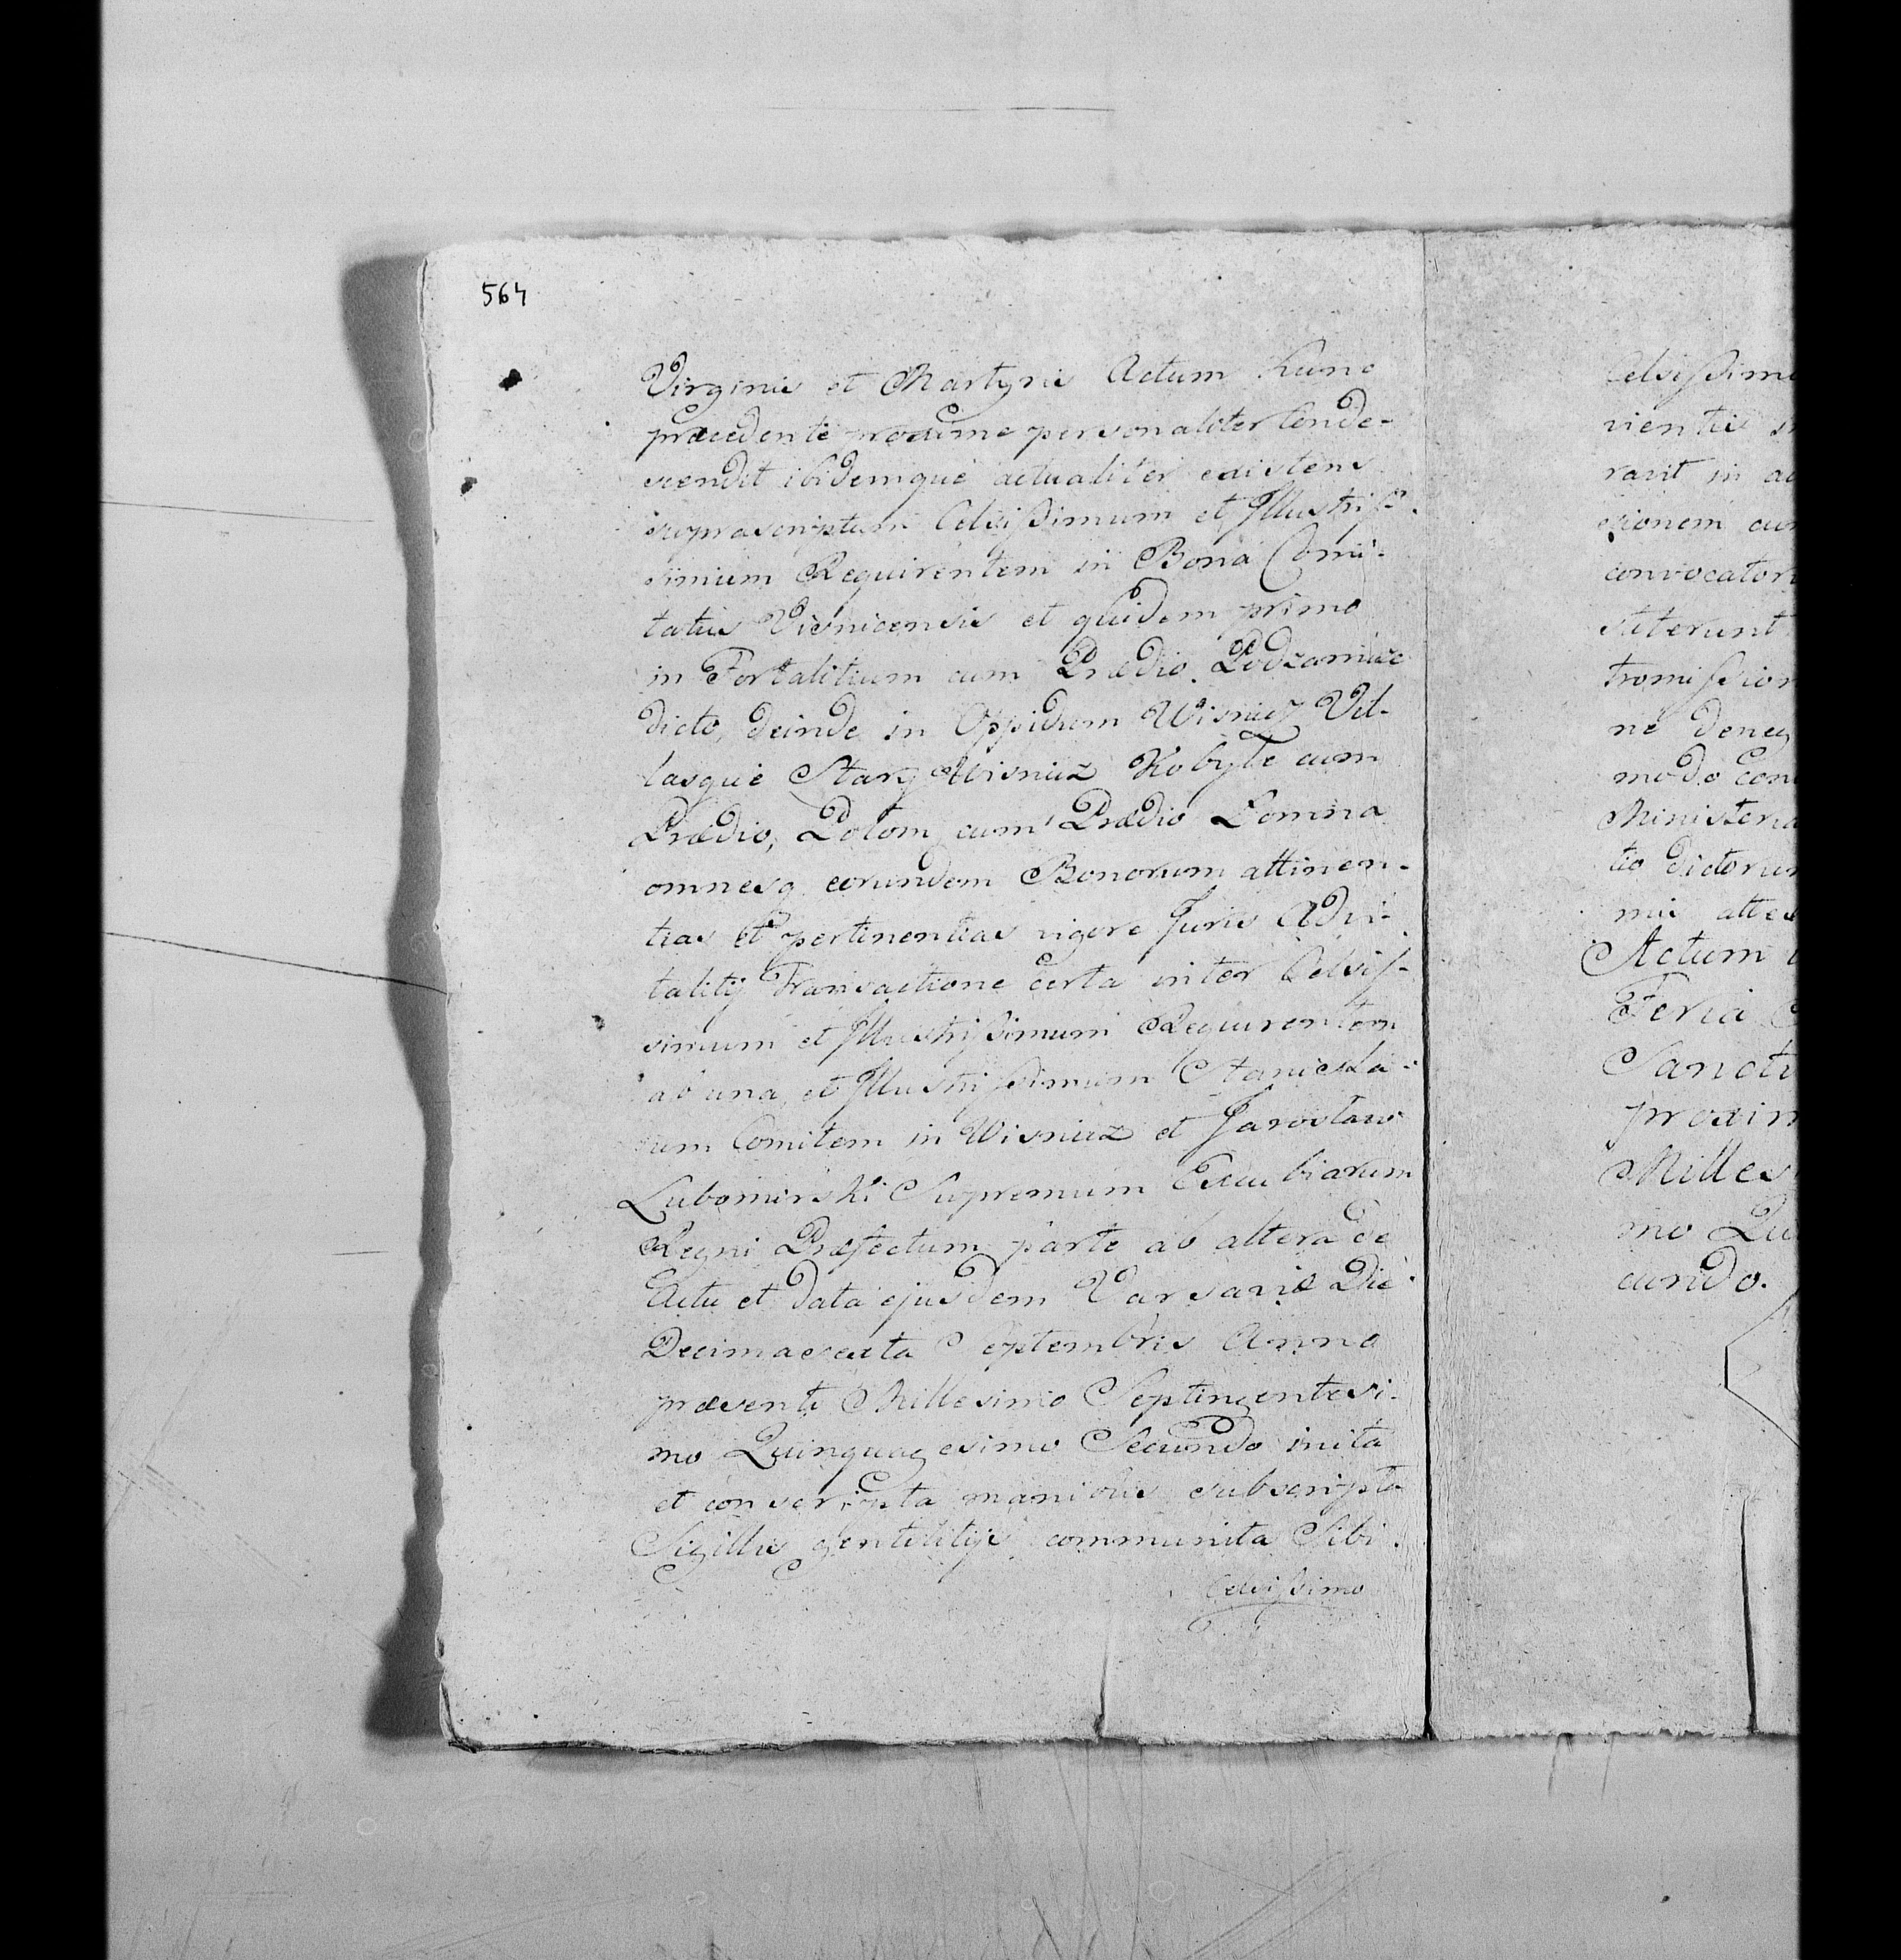 564
Virginis et Martyris Actum hunc
præcedente proxime personaliter conde-
scendit ibidemque actualiter existens
suprascriptum Celsissimum et Illustris-
simum Requirentem in Bona Comi-
tatus Visnicensis et quidem primo
in Fortalitium cum Prædio Podzamcze
dicto, deinde in Oppidum Wisnicz Vil-
lasque Stary Wisnicz Kobyle cum
Prædio, Polom cum Prædio Łomna
omnesq. eorundem Bonorum attinen-
tias et pertinentias vigore Juris Advi-
talitij Transactione certa inter Celsis-
simum et Illustrissimum Requirentem
ab una, et Illustrissimum Stanisla-
um Comitem in Wisnicz et Jarosław
Lubomirski Supremum Excubiarum
Regni Præfectum parte ab altera de
Actu et data ejusdem Varsaviæ Die
Decimasexta Septembris Anno
præsenti Millesimo Septingentesi-
mo Quinquagesimo Secundo inita
et conscripta manibus subscripta
Sigillis gentilitijs communita Sibi.
Celsissimo
Celsissimo
vientis
ravit in
convocator
stiterunt
ne
modo
Actum
Feria
Sancti
mo
cundo.